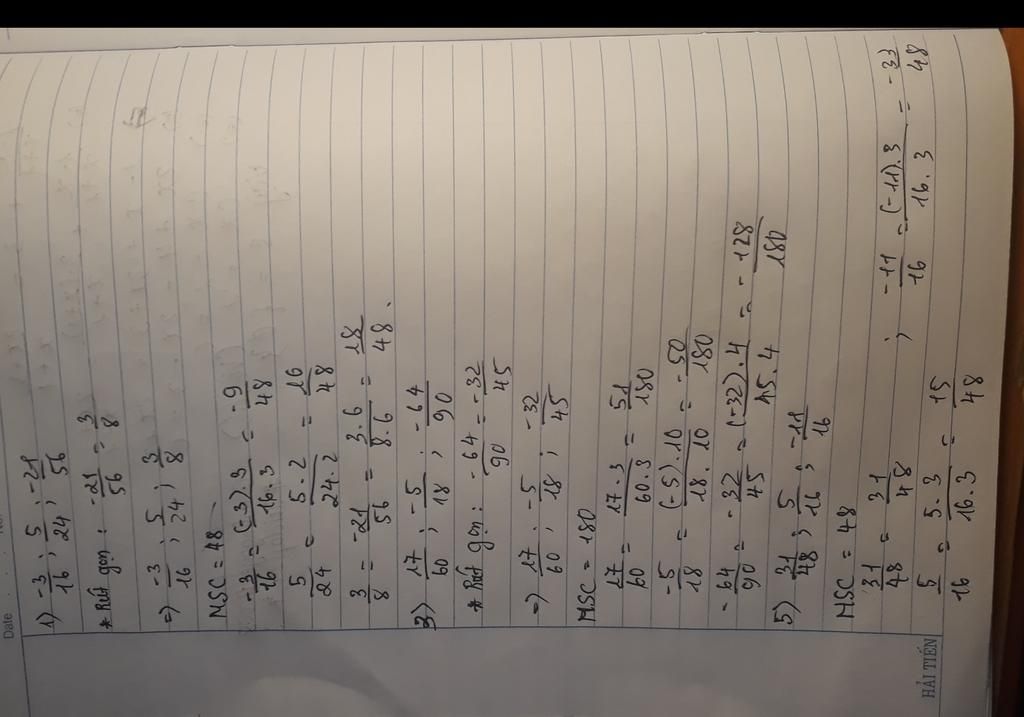 Date
No.
1) -3/16 ; 5/24 ; -21/56
* Rút gọn : -21/56 = 3/8
=) -3/16 ; 5/24 ; 3/8
MSC = 48
-3/16 = (-3).3/16.3 = -9/48
5/24 = 5.2/24.2 = 16/48
3/8 = -21/56 = 3.6/8.6 = 18/48.
3) 17/60 ; -5/18 ; -64/90
* Rút gọn : -64/90 = -32/45
=) 17/60 ; -5/18 ; -32/45
MSC = 180
17/60 = 17.3/60.3 = 51/180
-5/18 = (-5).10/18.10 = -50/180
-64/90 = -32/45 = (-32).4/45.4 = -128/180
5) 31/48 ; 5/16 ; -11/16
MSC = 48
31/48 = 31/48 ; -11/16 = (-11).3/16.3 = -33/48
5/16 = 5.3/16.3 = 15/48
HẢI TIẾN